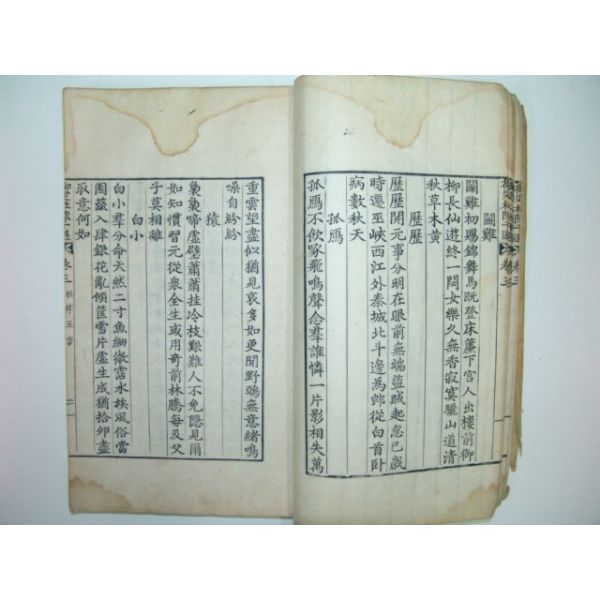 鬬雞
鬬雞初賜錦舞馬既登床簾下宮人出樓前御
柳長仙遊終一閟女樂久無香寂寞驪山道清
秋草木黃
歷歷
歷歷開元事分明在眼前無端盜賊起忽已歲
時遷巫峽西江外秦城北斗邊為郎從白首臥
病數秋天
孤鴈
孤鴈不飲啄飛鳴聲念羣誰憐一片影相失萬
重雲望盡似猶見哀多如更聞野鴉無意緒鳴
噪自紛紛
猿
裊裊啼虛壁蕭蕭挂冷枝艱難人不免隱見爾
如知慣習元從衆全生或用奇前林騰每及父
子莫相離
白小
白小羣分命天然二寸魚細微霑水族風俗當
園蔬入肆銀花亂傾筐雪片虛生成猶拾卵盡
取意何如
卷三 杜詩五言 二